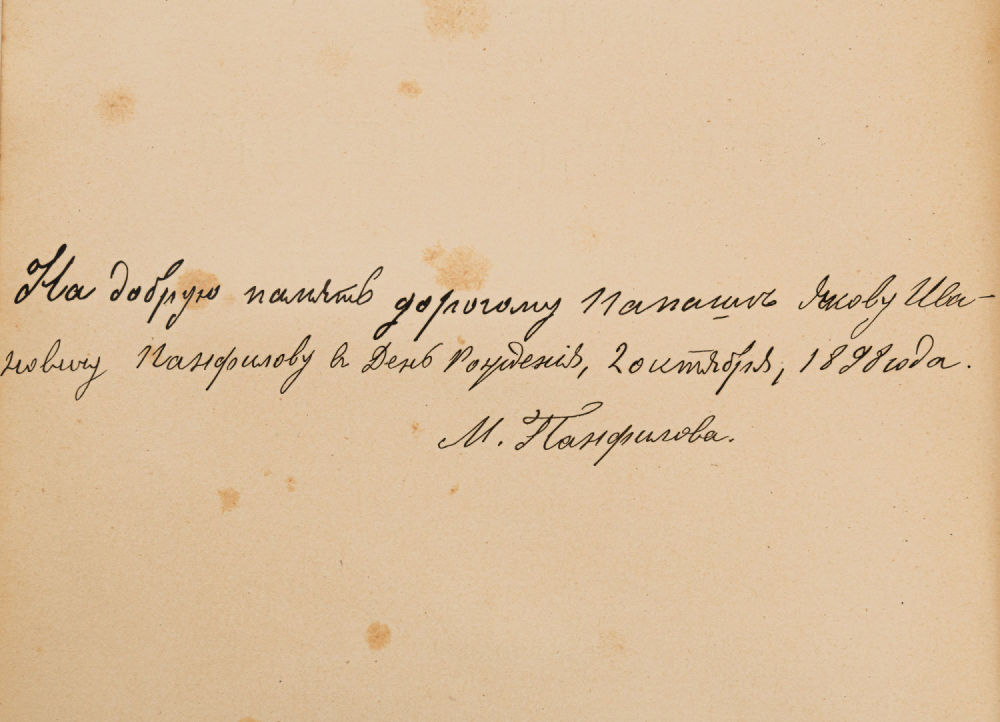 На добрую память дорогому Папашѣ Якову Ива-
новичу Панфилову въ День Рожденія, 2 октября, 1898 года.
М. Панфилова.